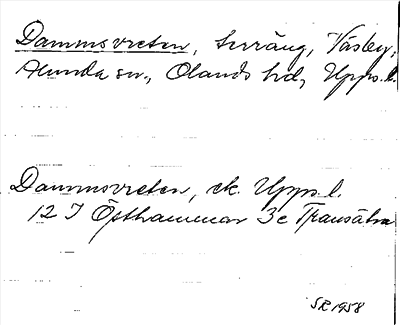 Dammsvreten, terräng, Väsby,
Alunda sn., Olands hd, Upps. l.
Dammsvreten, ek. Upps. l.
12 I Östhammar 3c Transätra
SR 1958